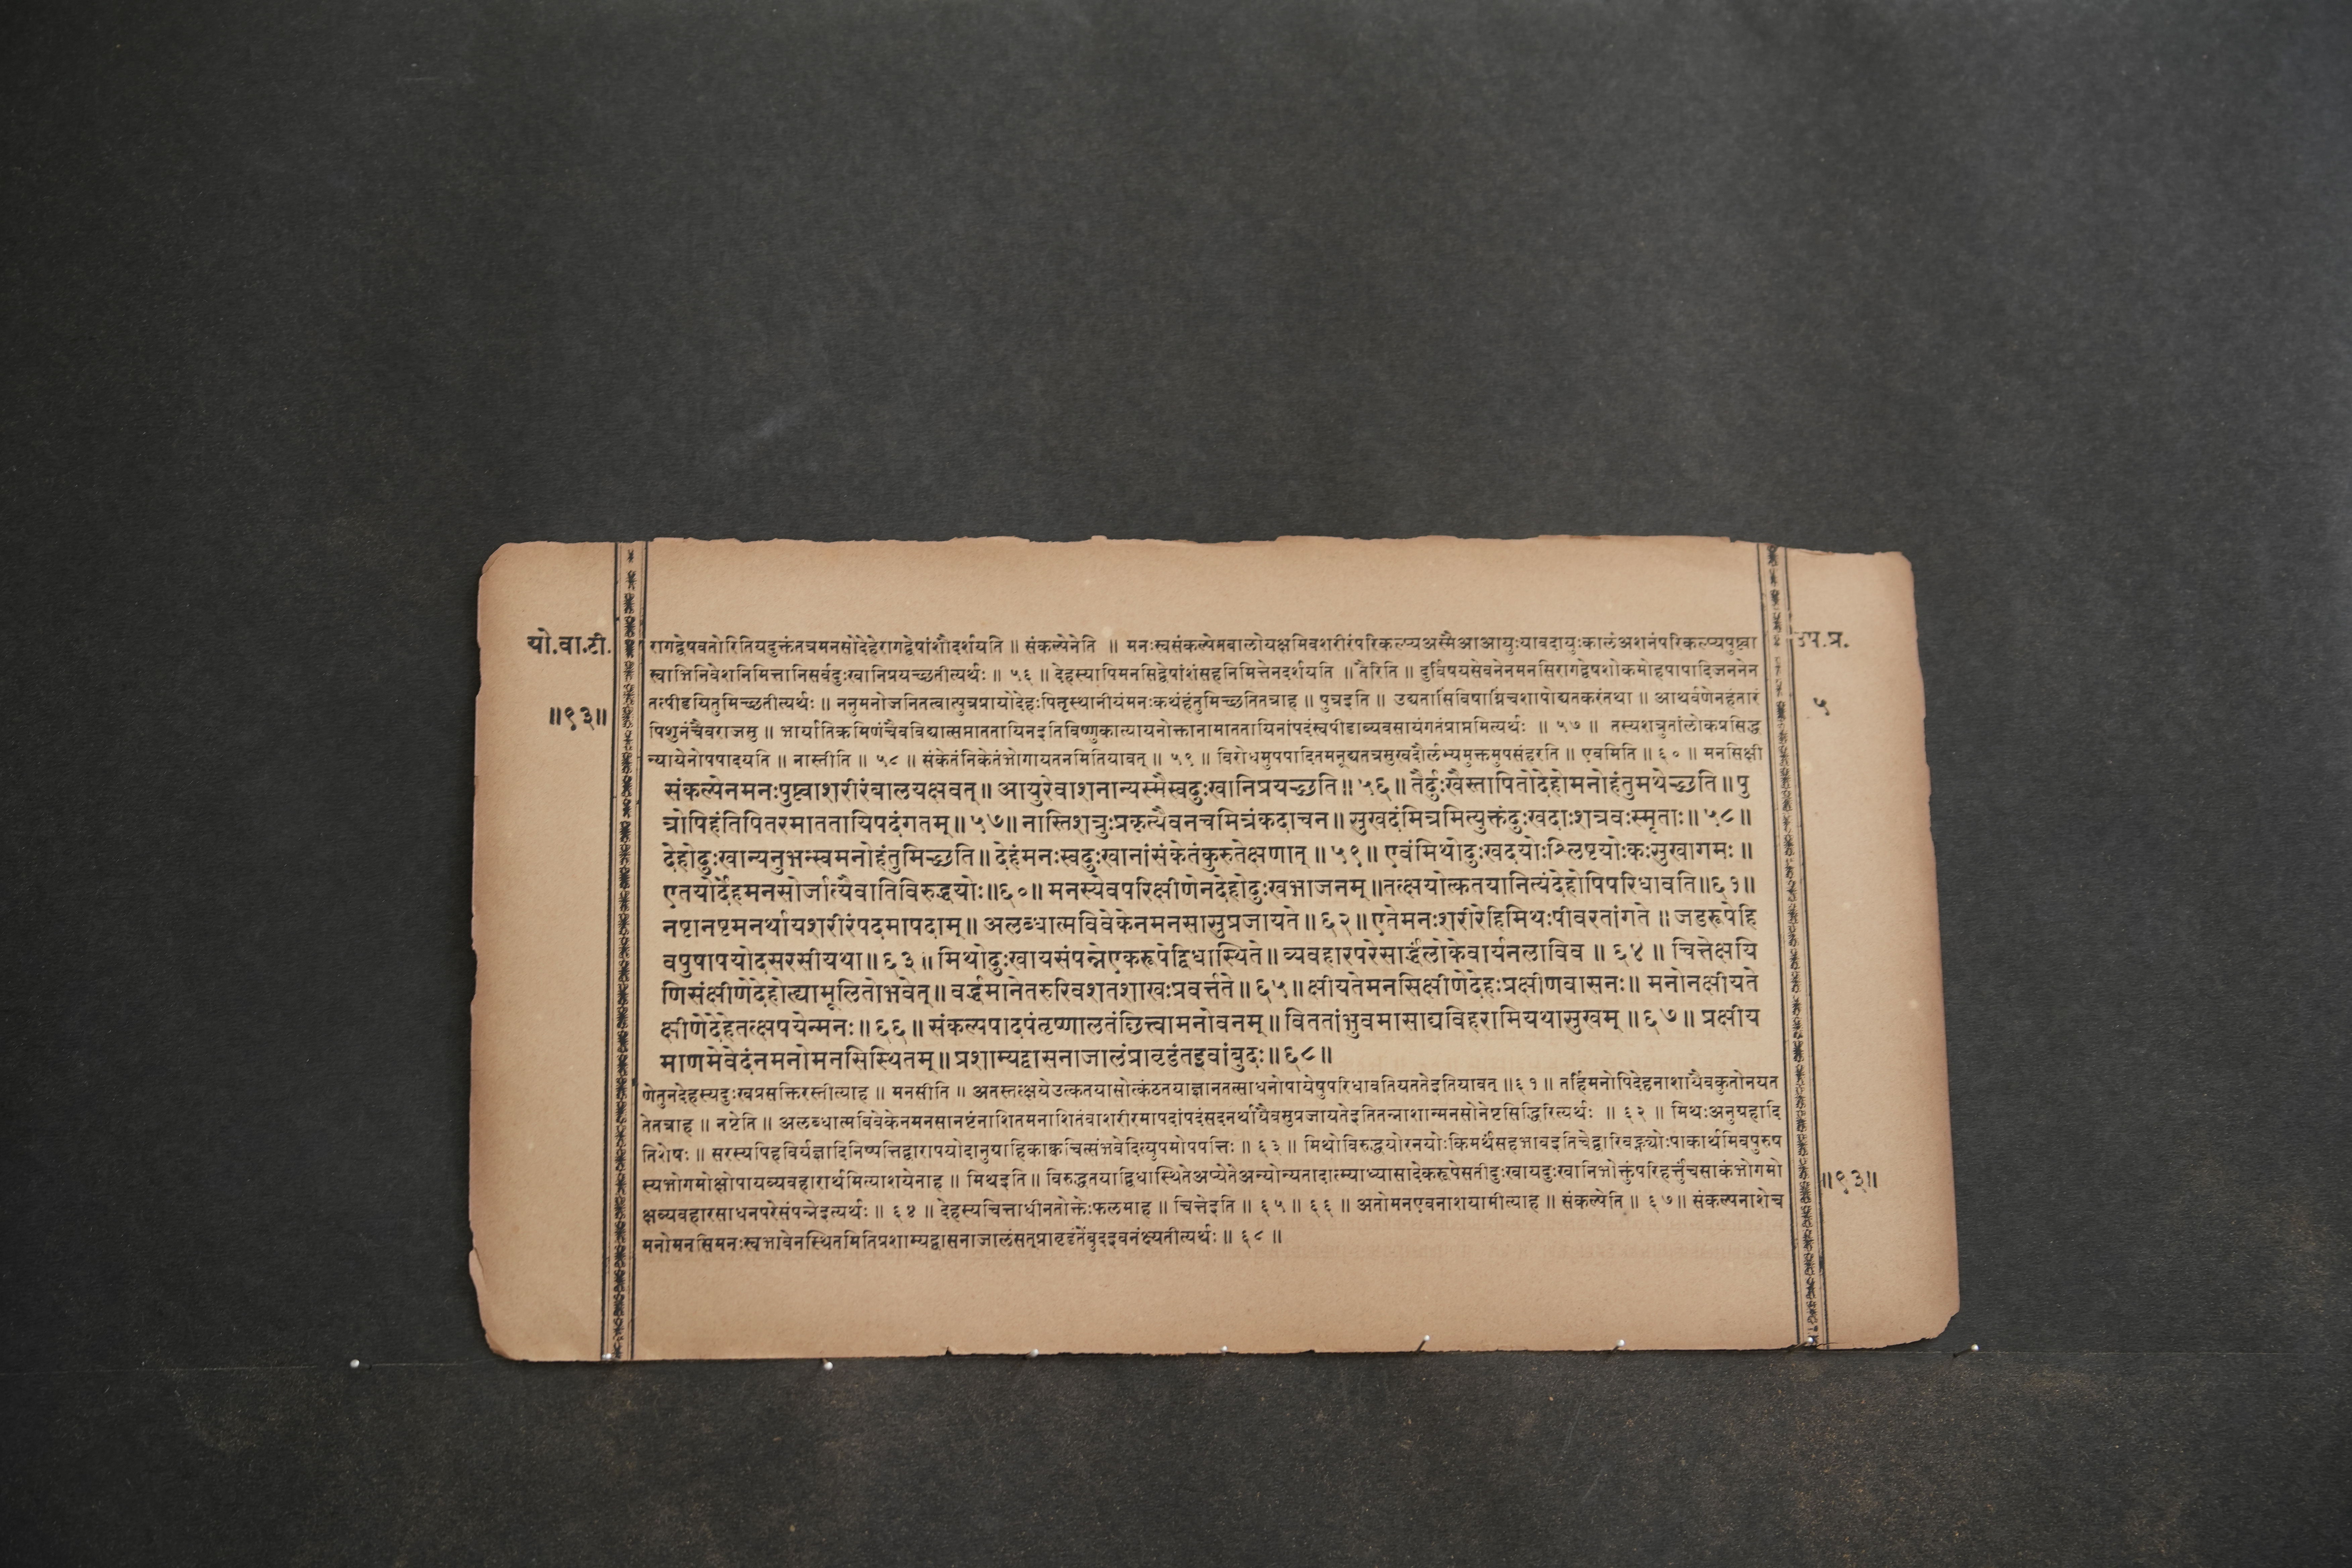 यो.वा.टी.
॥९३॥
उप.प्र.
५
रागद्वेषवतोरितियदुक्तंतत्रमनसोदेहेरागद्वेषांशौदर्शयति ॥ संकल्पेनेति ॥ मनःस्वसंकल्पेनबालोयक्षमिवशरीरंपरिकल्प्यअस्मैआआयुःयावदायुःकालंअशनंपरिकल्प्यपुष्ट्वा
स्वाभिनिवेशनिमित्तानिसर्वदुःखानिप्रयच्छतीत्यर्थः ॥ ५६ ॥ देहस्यापिमनसिद्वेषांशंसहनिमित्तेनदर्शयति ॥ तैरिति ॥ दुर्विषयसेवनेनमनसिरागद्वेषशोकमोहपापादिजननेन
तत्पीडयितुमिच्छतीत्यर्थः ॥ ननुमनोजनितत्वात्पुत्रप्रायोदेहःपितृस्थानीयंमनःकथंहंतुमिच्छतितत्राह ॥ पुत्रइति ॥ उद्यतासिविषाग्निंचशापोद्यतकरंतथा ॥ आथर्वणेनहंतारं
पिशुनंचैवराजसु ॥ भार्यातिक्रमिणंचैवविद्यात्सप्ताततायिनइतिविष्णुकात्यायनोक्तानामाततायिनांपदंस्वपीडाव्यवसायंगतंप्राप्तमित्यर्थः ॥ ५७ ॥ तस्यशत्रुतांलोकप्रसिद्ध
न्यायेनोपपादयति ॥ नास्तीति ॥ ५८ ॥ संकेतंनिकेतंभोगायतनमितियावत् ॥ ५९ ॥ विरोधमुपपादितमनूद्यतत्रसुखदौर्लभ्यमुक्तमुपसंहरति ॥ एवमिति ॥ ६० ॥ मनसिक्षी
संकल्पेनमनःपुष्ट्वाशरीरंबालयक्षवत् ॥ आयुरेवाशनान्यस्मैस्वदुःखानिप्रयच्छति ॥ ५६ ॥ तैर्दुःखैस्तापितोदेहोमनोहंतुमथेच्छति ॥ पु
त्रोपिहंतिपितरमाततायिपदंगतम् ॥ ५७ ॥ नास्तिशत्रुःप्रकृत्यैवनचमित्रंकदाचन ॥ सुखदंमित्रमित्युक्तंदुःखदाःशत्रवःस्मृताः ॥ ५८ ॥
देहोदुःखान्यनुभन्स्वमनोहंतुमिच्छति ॥ देहंमनःस्वदुःखानांसंकेतंकुरुतेक्षणात् ॥ ५९ ॥ एवंमिथोदुःखदयोःश्लिष्टयोःकःसुखागमः ॥
एतयोर्देहमनसोर्जात्यैवातिविरुद्धयोः ॥ ६० ॥ मनस्येवपरिक्षीणेनदेहोदुःखभाजनम् ॥ तत्क्षयोत्कतयानित्यंदेहोपिपरिधावति ॥ ६१ ॥
नष्टानष्टमनर्थायशरीरंपदमापदाम् ॥ अलब्धात्मविवेकेनमनसासुप्रजायते ॥ ६२ ॥ एतेमनःशरीरेहिमिथःपीवरतांगते ॥ जडरूपेहि
वपुषापयोदसरसीयथा ॥ ६३ ॥ मिथोदुःखायसंपन्नेएकरूपेद्विधास्थिते ॥ व्यवहारपरेसार्द्धंलोकेवार्यनलाविव ॥ ६४ ॥ चित्तेक्षयि
णिसंक्षीणेदेहोह्यामूलितोभवेत् ॥ वर्द्धमानेतरुरिवशतशाखःप्रवर्त्तते ॥ ६५ ॥ क्षीयतेमनसिक्षीणेदेहःप्रक्षीणवासनः ॥ मनोनक्षीयते
क्षीणेदेहेतत्क्षपयेन्मनः ॥ ६६ ॥ संकल्पपादपंतृष्णालतंछित्त्वामनोवनम् ॥ विततांभुवमासाद्यविहरामियथासुखम् ॥ ६७ ॥ प्रक्षीय
माणमेवेदंनमनोमनसिस्थितम् ॥ प्रशाम्यद्वासनाजालंप्रावृडंतइवांबुदः ॥ ६८ ॥
णेतुनदेहस्यदुःखप्रसक्तिरस्तीत्याह ॥ मनसीति ॥ अतस्तत्क्षयेउत्कतयासोत्कंठतयाज्ञानतत्साधनोपायेषुपरिधावतियततेइतियावत् ॥ ६१ ॥ तर्हिमनोपिदेहनाशायैवकुतोनयत
तेतत्राह ॥ नष्टेति ॥ अलब्धात्मविवेकेनमनसानष्टंनाशितमनाशितंवाशरीरमापदांपदंसदनर्थायैवसुप्रजायतेइतितन्नाशान्मनसोनेष्टसिद्धिरित्यर्थः ॥ ६२ ॥ मिथःअनुग्रहादि
तिशेषः ॥ सरस्यपिहविर्यज्ञादिनिष्पत्तिद्वारापयोदानुग्राहिकाक्वचित्संभवेदित्युपमोपपत्तिः ॥ ६३ ॥ मिथोविरुद्धयोरनयोःकिमर्थंसहभावइतिचेद्वारिवह्न्योःपाकार्थमिवपुरुष
स्यभोगमोक्षोपायव्यवहारार्थमित्याशयेनाह ॥ मिथइति ॥ विरुद्धतयाद्विधास्थितेअप्येतेअन्योन्यतादात्म्याध्यासादेकरूपेसतीदुःखायदुःखानिभोक्तुंपरिहर्त्तुंचसाकंभोगमो
क्षव्यवहारसाधनपरेसंपन्नेइत्यर्थः ॥ ६४ ॥ देहस्यचित्ताधीनतोक्तेःफलमाह ॥ चित्तेइति ॥ ६५ ॥ ६६ ॥ अतोमनएवनाशयामीत्याह ॥ संकल्पेति ॥ ६७ ॥ संकल्पनाशेच
मनोमनसिमनःस्वभावेनस्थितमितिप्रशाम्यद्वासनाजालंसत्प्रावृडंतेंबुदइवनंक्ष्यतीत्यर्थः ॥ ६८ ॥
॥९३॥